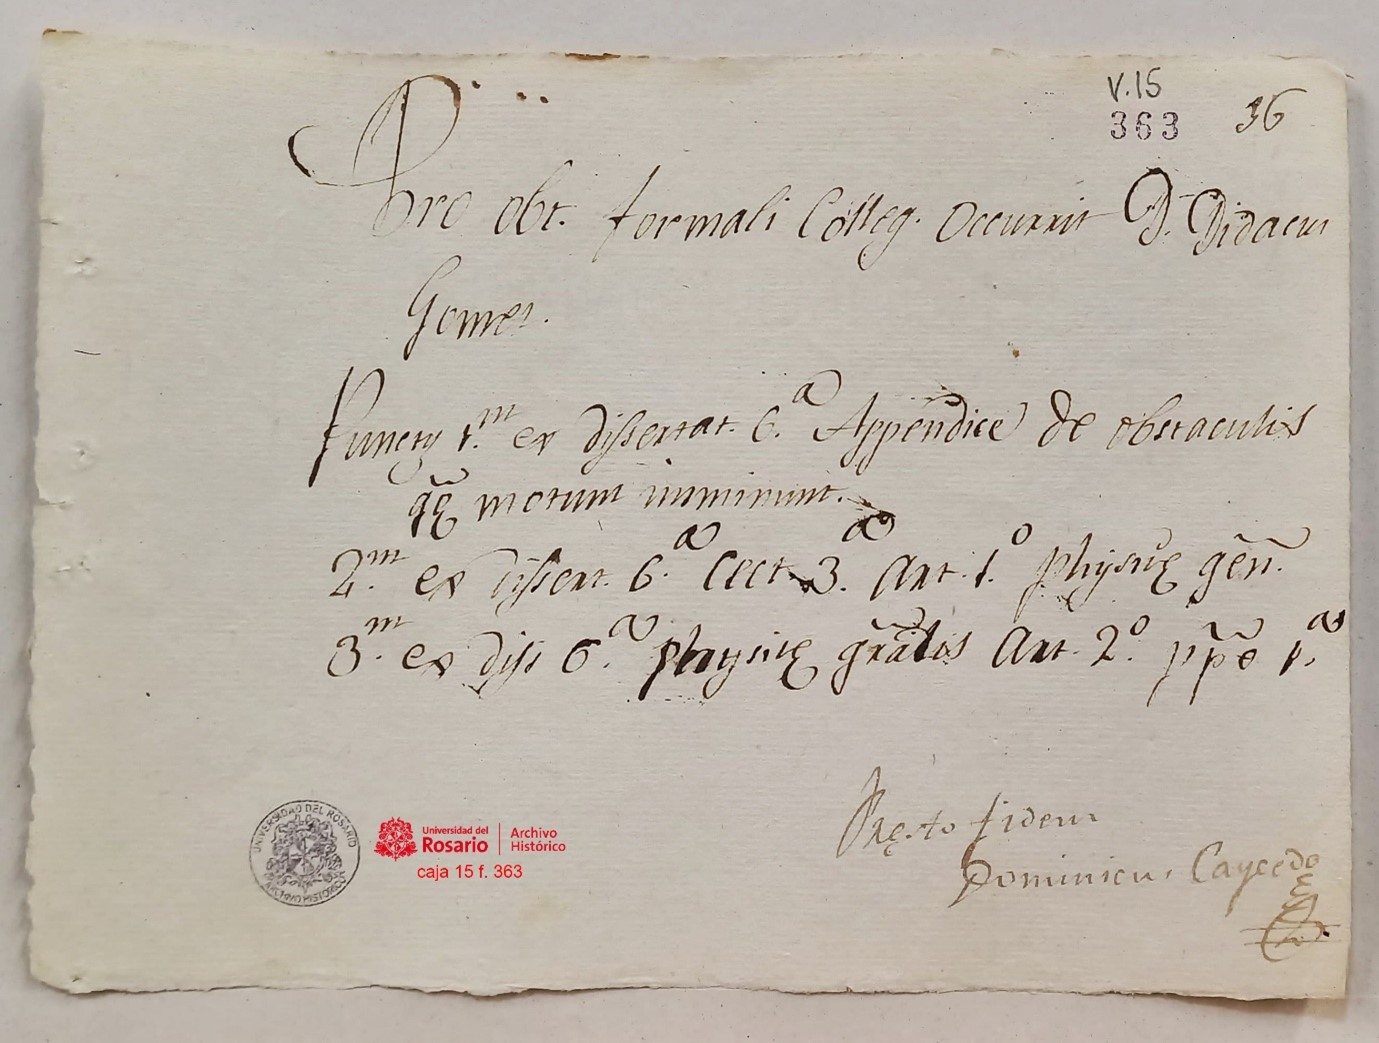 V.15
363 36
Pro obt. formali Colleg. Occurrit D. Didacus
Gomes.
Punctũ 1.m ex dissertat. 6.a Appendice de obstaculis
motum imminunt.
2.m ex dissert. 6.a Sect. 3.a Art. 1.o physicę gẽn.
3.m ex diss 6.a physicę grãlis Art. 2.o 1.as
Pręsto fidem
Dominicus Caycedo
UNIVERSIDAD DEL ROSARIO
ARCHIVO HISTORICO
Universidad del Rosario Archivo Histórico
caja 15 f. 363